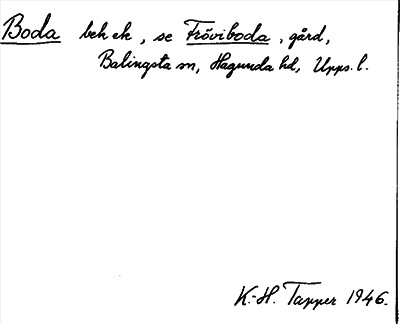 Boda beh ek, se Fröviboda, gård,
Balingsta sn, Hagunda hd, Upps. l.
K.-H. Tapper 1946.